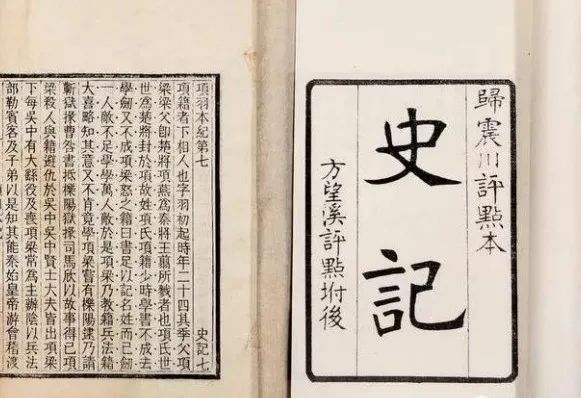 歸震川評點本
史記
方望溪評點坿後
項羽本紀第七
史記七
項籍者下相人也字羽初起時年二十四其季父項
梁梁父卽楚將項燕爲秦將王翦所戮者也項氏世
世爲楚將封於項故姓項氏項籍少時學書不成去
學劒又不成項梁怒之籍曰書足以記名姓而已劒
一人敵不足學學萬人敵於是項梁乃教籍兵法籍
大喜略知其意又不肯竟學項梁嘗有櫟陽逮乃請
蘄獄掾曹咎書抵櫟陽獄掾司馬欣以故事得已項
梁殺人與籍避仇於吳中吳中賢士大夫皆出項梁
下每吳中有大繇役及喪項梁常爲主辦陰以兵法
部勒賓客及子弟以是知其能秦始皇帝游會稽渡